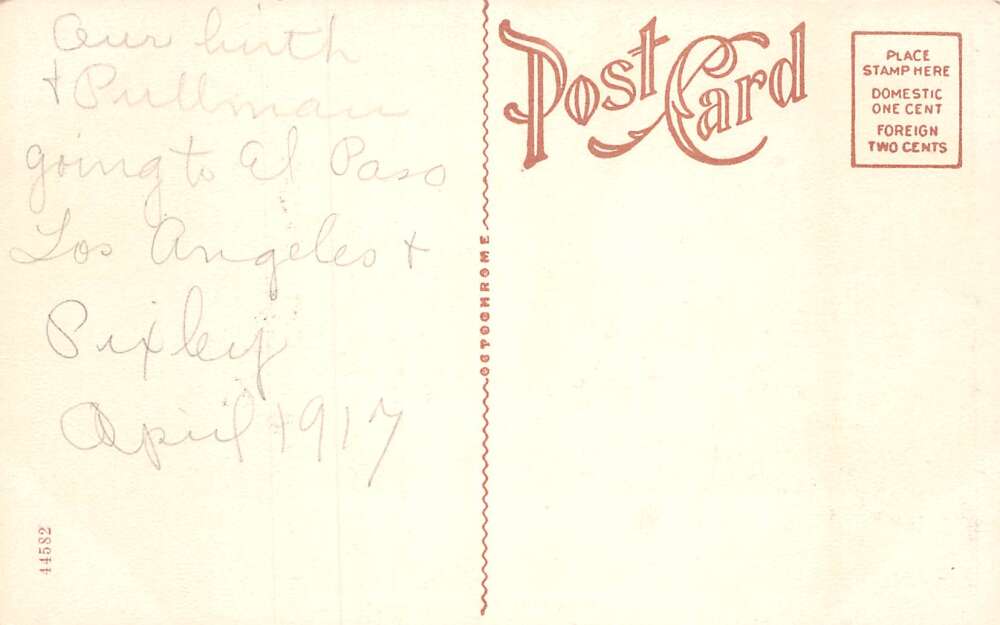 Our birth
+ Pullman
going to El Paso
Los Angeles +
Pixley
April 1917
44582
OCTOCHROME
Post Card
PLACE
STAMP HERE
DOMESTIC
ONE CENT
FOREIGN
TWO CENTS